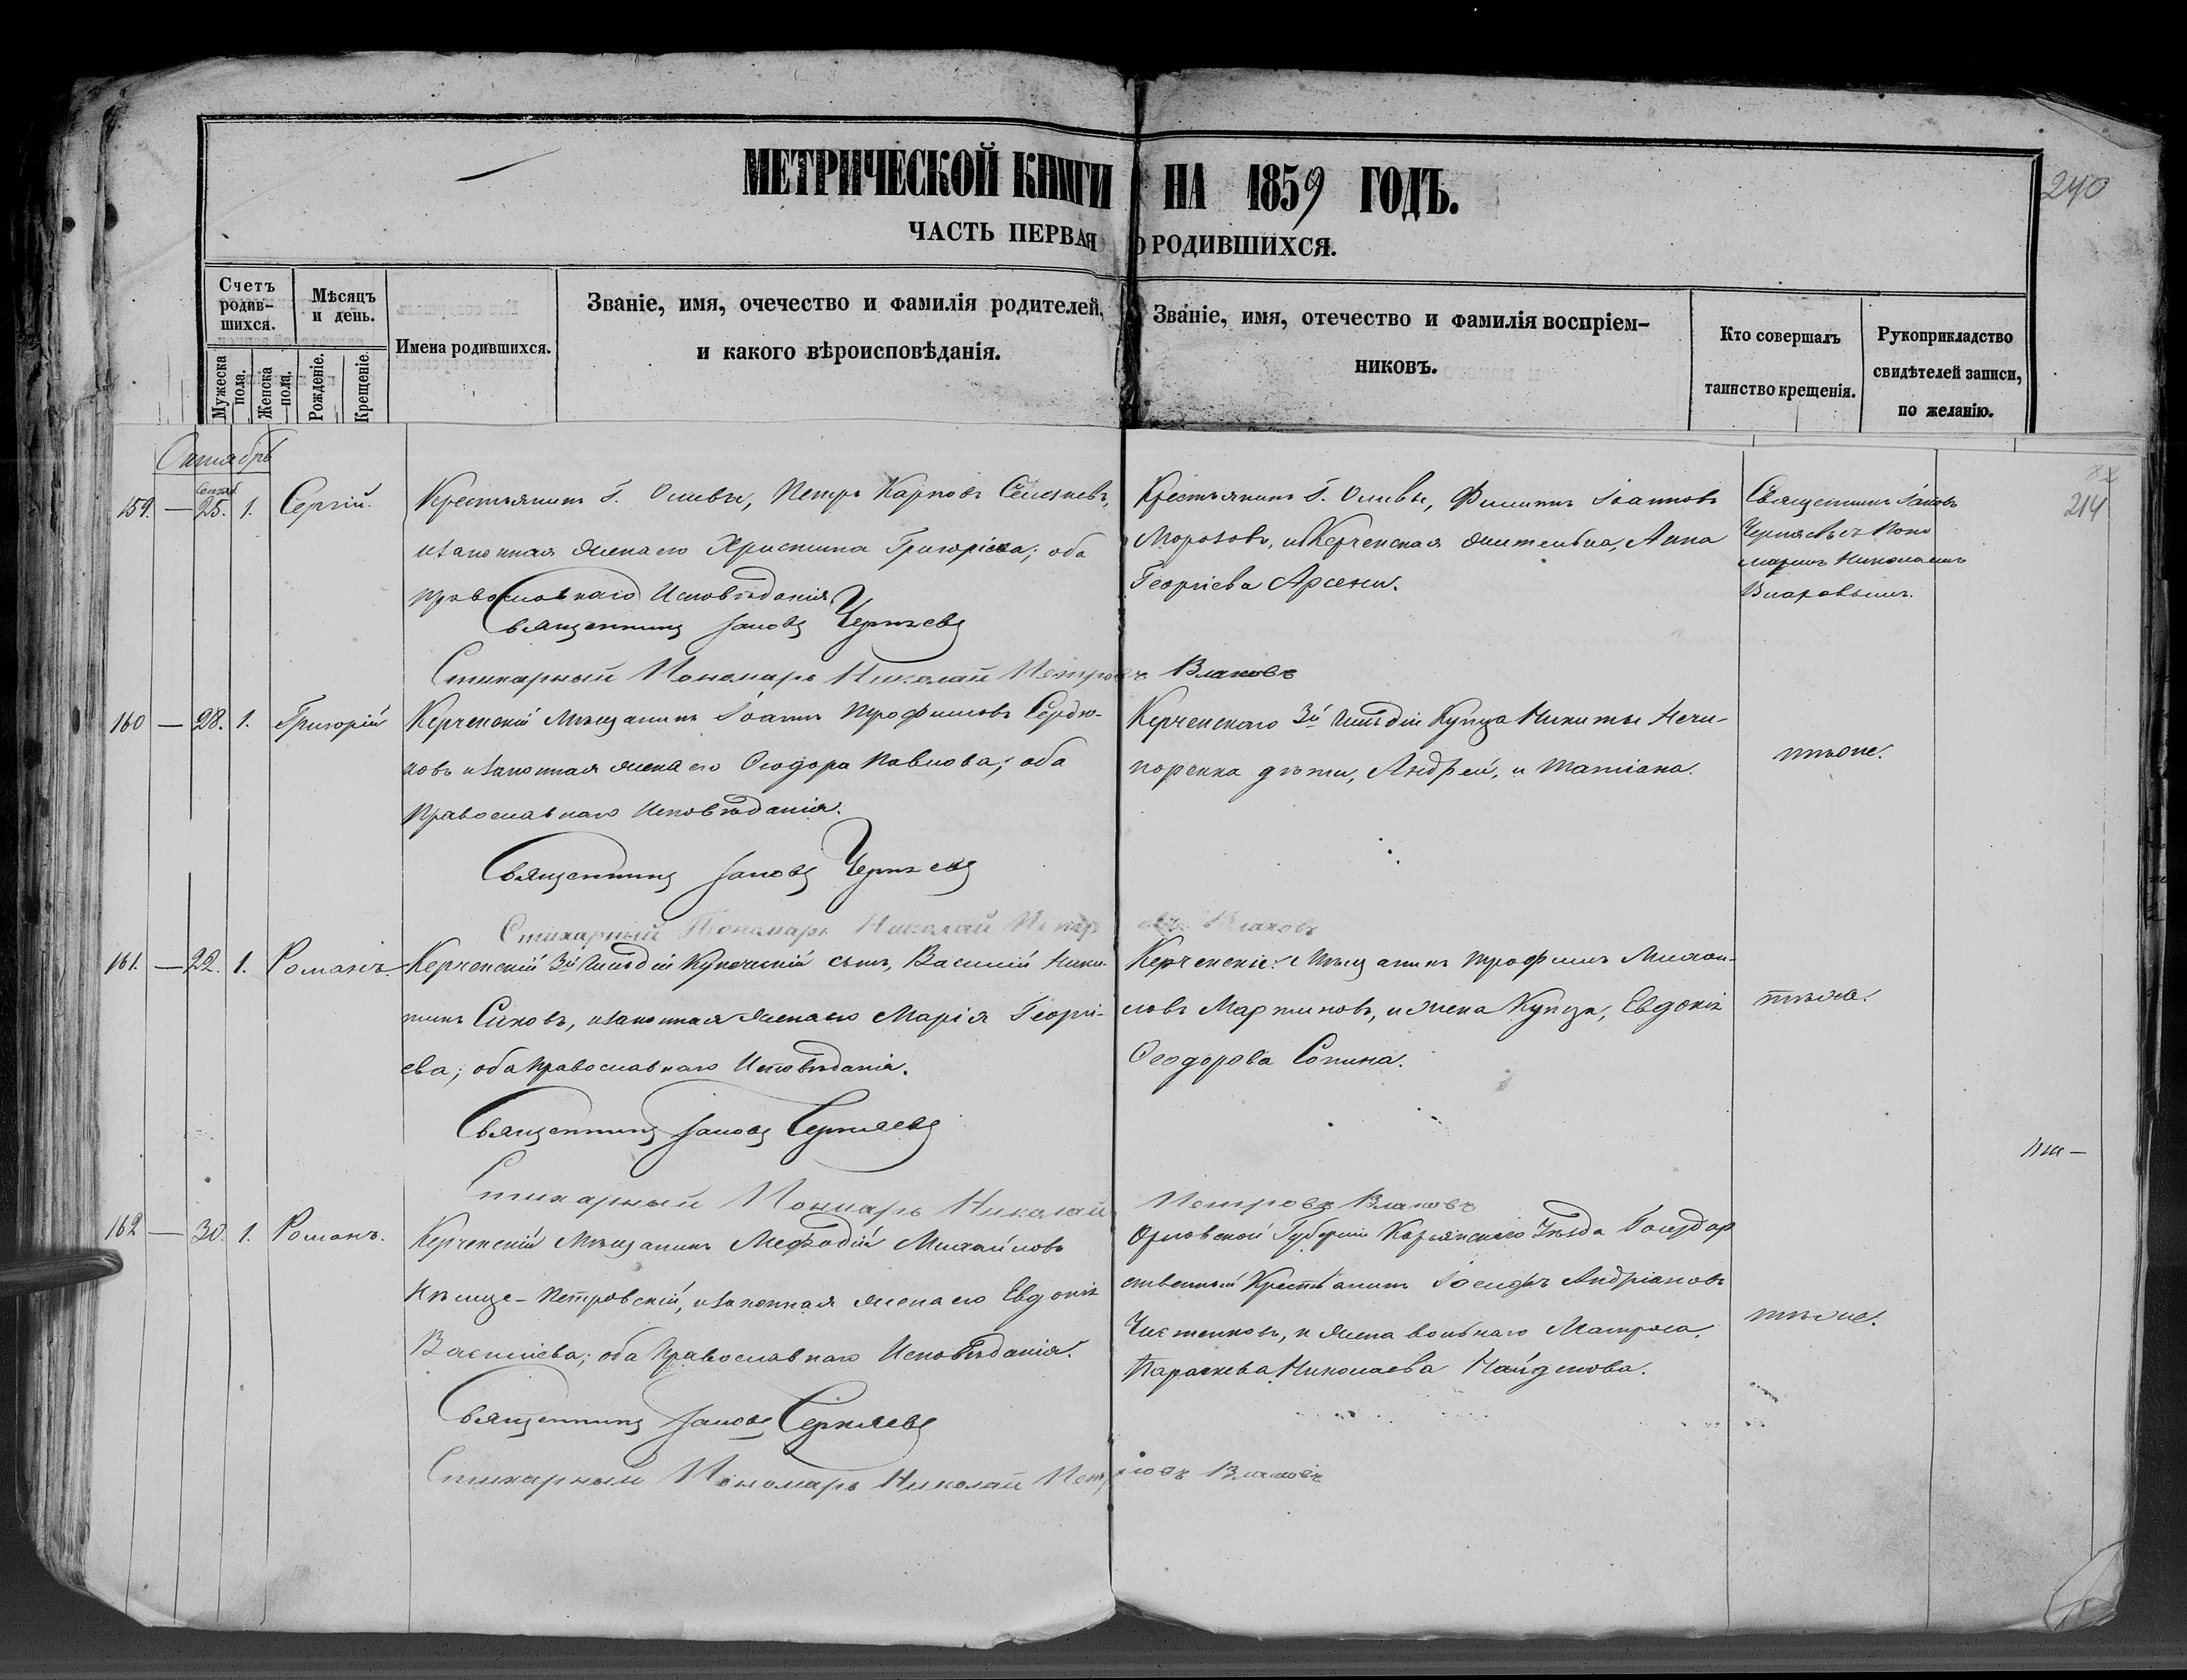 МЕТРИЧЕСКОЙ КНИГИ НА 1859 ГОДЪ.
240
ЧАСТЬ ПЕРВАЯ О РОДИВШИХСЯ.
Счетъ родив-шихся.
Мужеска пола.
Женска пола.
Мѣсяцъ и день.
Рожденіе.
Крещеніе.
Имена родившихся.
Званіе, имя, очечество и фамилія родителей,
и какого вѣроисповѣданія.
Званіе, имя, отечество и фамилія воспріем-
никовъ.
Кто совершалъ
таинство крещенія.
Рукоприкладство
свидѣтелей записи,
по желанію.
Октябрь
214
159. — Сентяб. 25. 1. Сергій.
Крестьянинъ Г. Оливы, Петръ Карповъ Селезневъ,
и законная жена его Христина Григоріева; оба
православнаго Исповѣданія.
Священникъ Іаковъ Черняевъ
Стихарный Пономарь Николай Петровъ Влаховъ
Крестьянинъ Г. Оливы, Филиппъ Іоанновъ
Морозовъ, и Керченская жителька, Анна
Георгіева Арсени.
Священникъ Іаковъ
Черняевъ съ Поно
маремъ Николаемъ
Влаховымъ.
160 — 28. 1. Григорій
Керченскій Мѣщанинъ Іоаннъ Трофимовъ Сердю-
ковъ и законная жена его Ѳеодора Павлова; оба
Православнаго Исповѣданія.
Священникъ Іаковъ Черняевъ
Стихарный Пономарь Николай Петровъ Влаховъ
Керченскаго 3й Гильдіи Купца Никиты Нечи-
поренка дѣти, Андрей, и Татіана.
тѣже.
161. — 22. 1. Романъ.
Керченскій 3й Гильдіи Купеческій сынъ, Василій Ники-
тинъ, и законная жена его Марія Георгі-
ева; оба Православнаго Исповѣданія.
Священникъ Іаковъ Черняевъ
Стихарный Пономарь Николай Петровъ Влаховъ
Керченскіе: Мѣщанинъ Трофимъ Михаи-
ловъ Мартиновъ, и жена Купца, Евдокія
Ѳеодорова Сопина.
тѣже.
162 — 30. 1. Романъ.
Керченскій Мѣщанинъ Меѳодій Михайловъ
Петровскій, и законная жена его Евдокія
Василіева; оба Православнаго Исповѣданія.
Священникъ Іаковъ Черняевъ
Стихарный Пономарь Николай Петровъ Влаховъ
Орловской Губерніи Уѣзда Государ
ственный Крестьянинъ Іосифъ Андріановъ
и жена вольнаго Матроса,
Параскева Николаева Найденова.
тѣже.